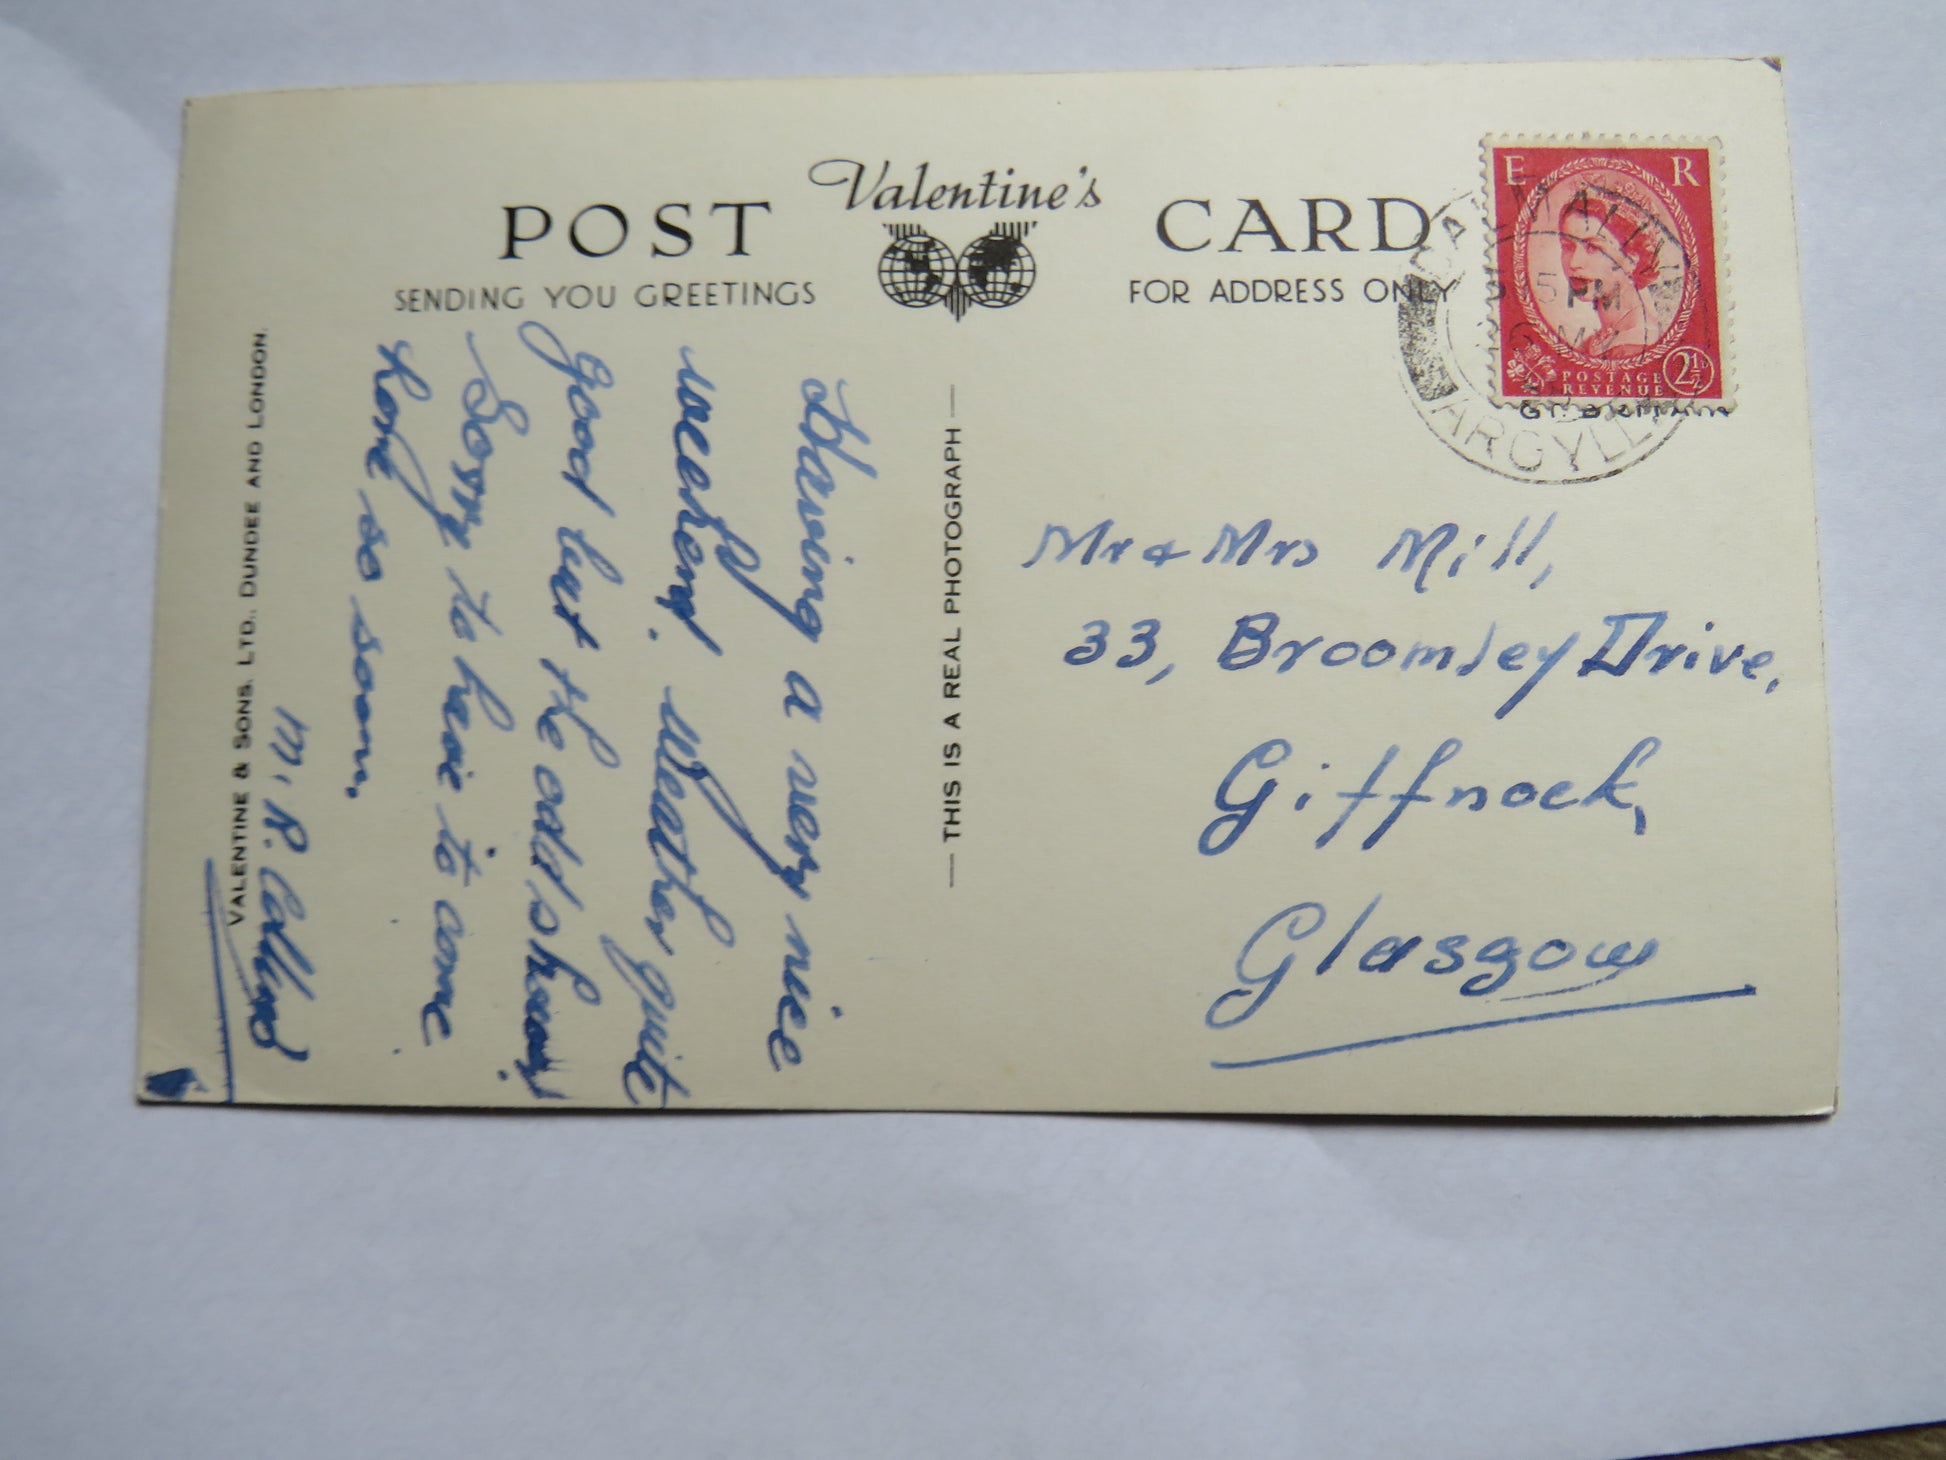 POST Valentine's CARD
SENDING YOU GREETINGS
FOR ADDRESS ONLY
E R
5 PM
POSTAGE
REVENUE
2½D
ARGYLL
GT. BRITAIN
Having a very nice
weekend. Weather quite
good but the odd shower.
Sorry to have to come
home so soon.
M. R.
VALENTINE & SONS. LTD., DUNDEE AND LONDON.
— THIS IS A REAL PHOTOGRAPH —
Mr & Mrs Mill,
33, Broomley Drive,
Giffnock,
Glasgow